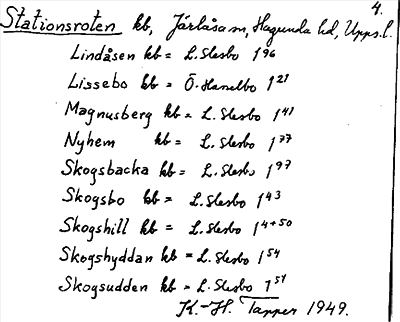 4.
Stationsroten kb, Järlåsa sn, Hagunda hd, Upps.l.
Lindåsen kb = L. Slesbo 1⁹⁶
Lissebo kb = Ö. Hanelbo 1²¹
Magnusberg kb = L. Slesbo 1⁴¹
Nyhem kb = L. Slesbo 1⁷⁷
Skogsbacka kb = L. Slesbo 1⁹⁷
Skogsbo kb = L. Slesbo 1⁴³
Skogshill kb = L. Slesbo 1⁴⁺⁵⁰
Skogshyddan kb = L. Slesbo 1⁵⁴
Skogsudden kb = L. Slesbo 1⁵⁷
K.-H. Tapper 1949.